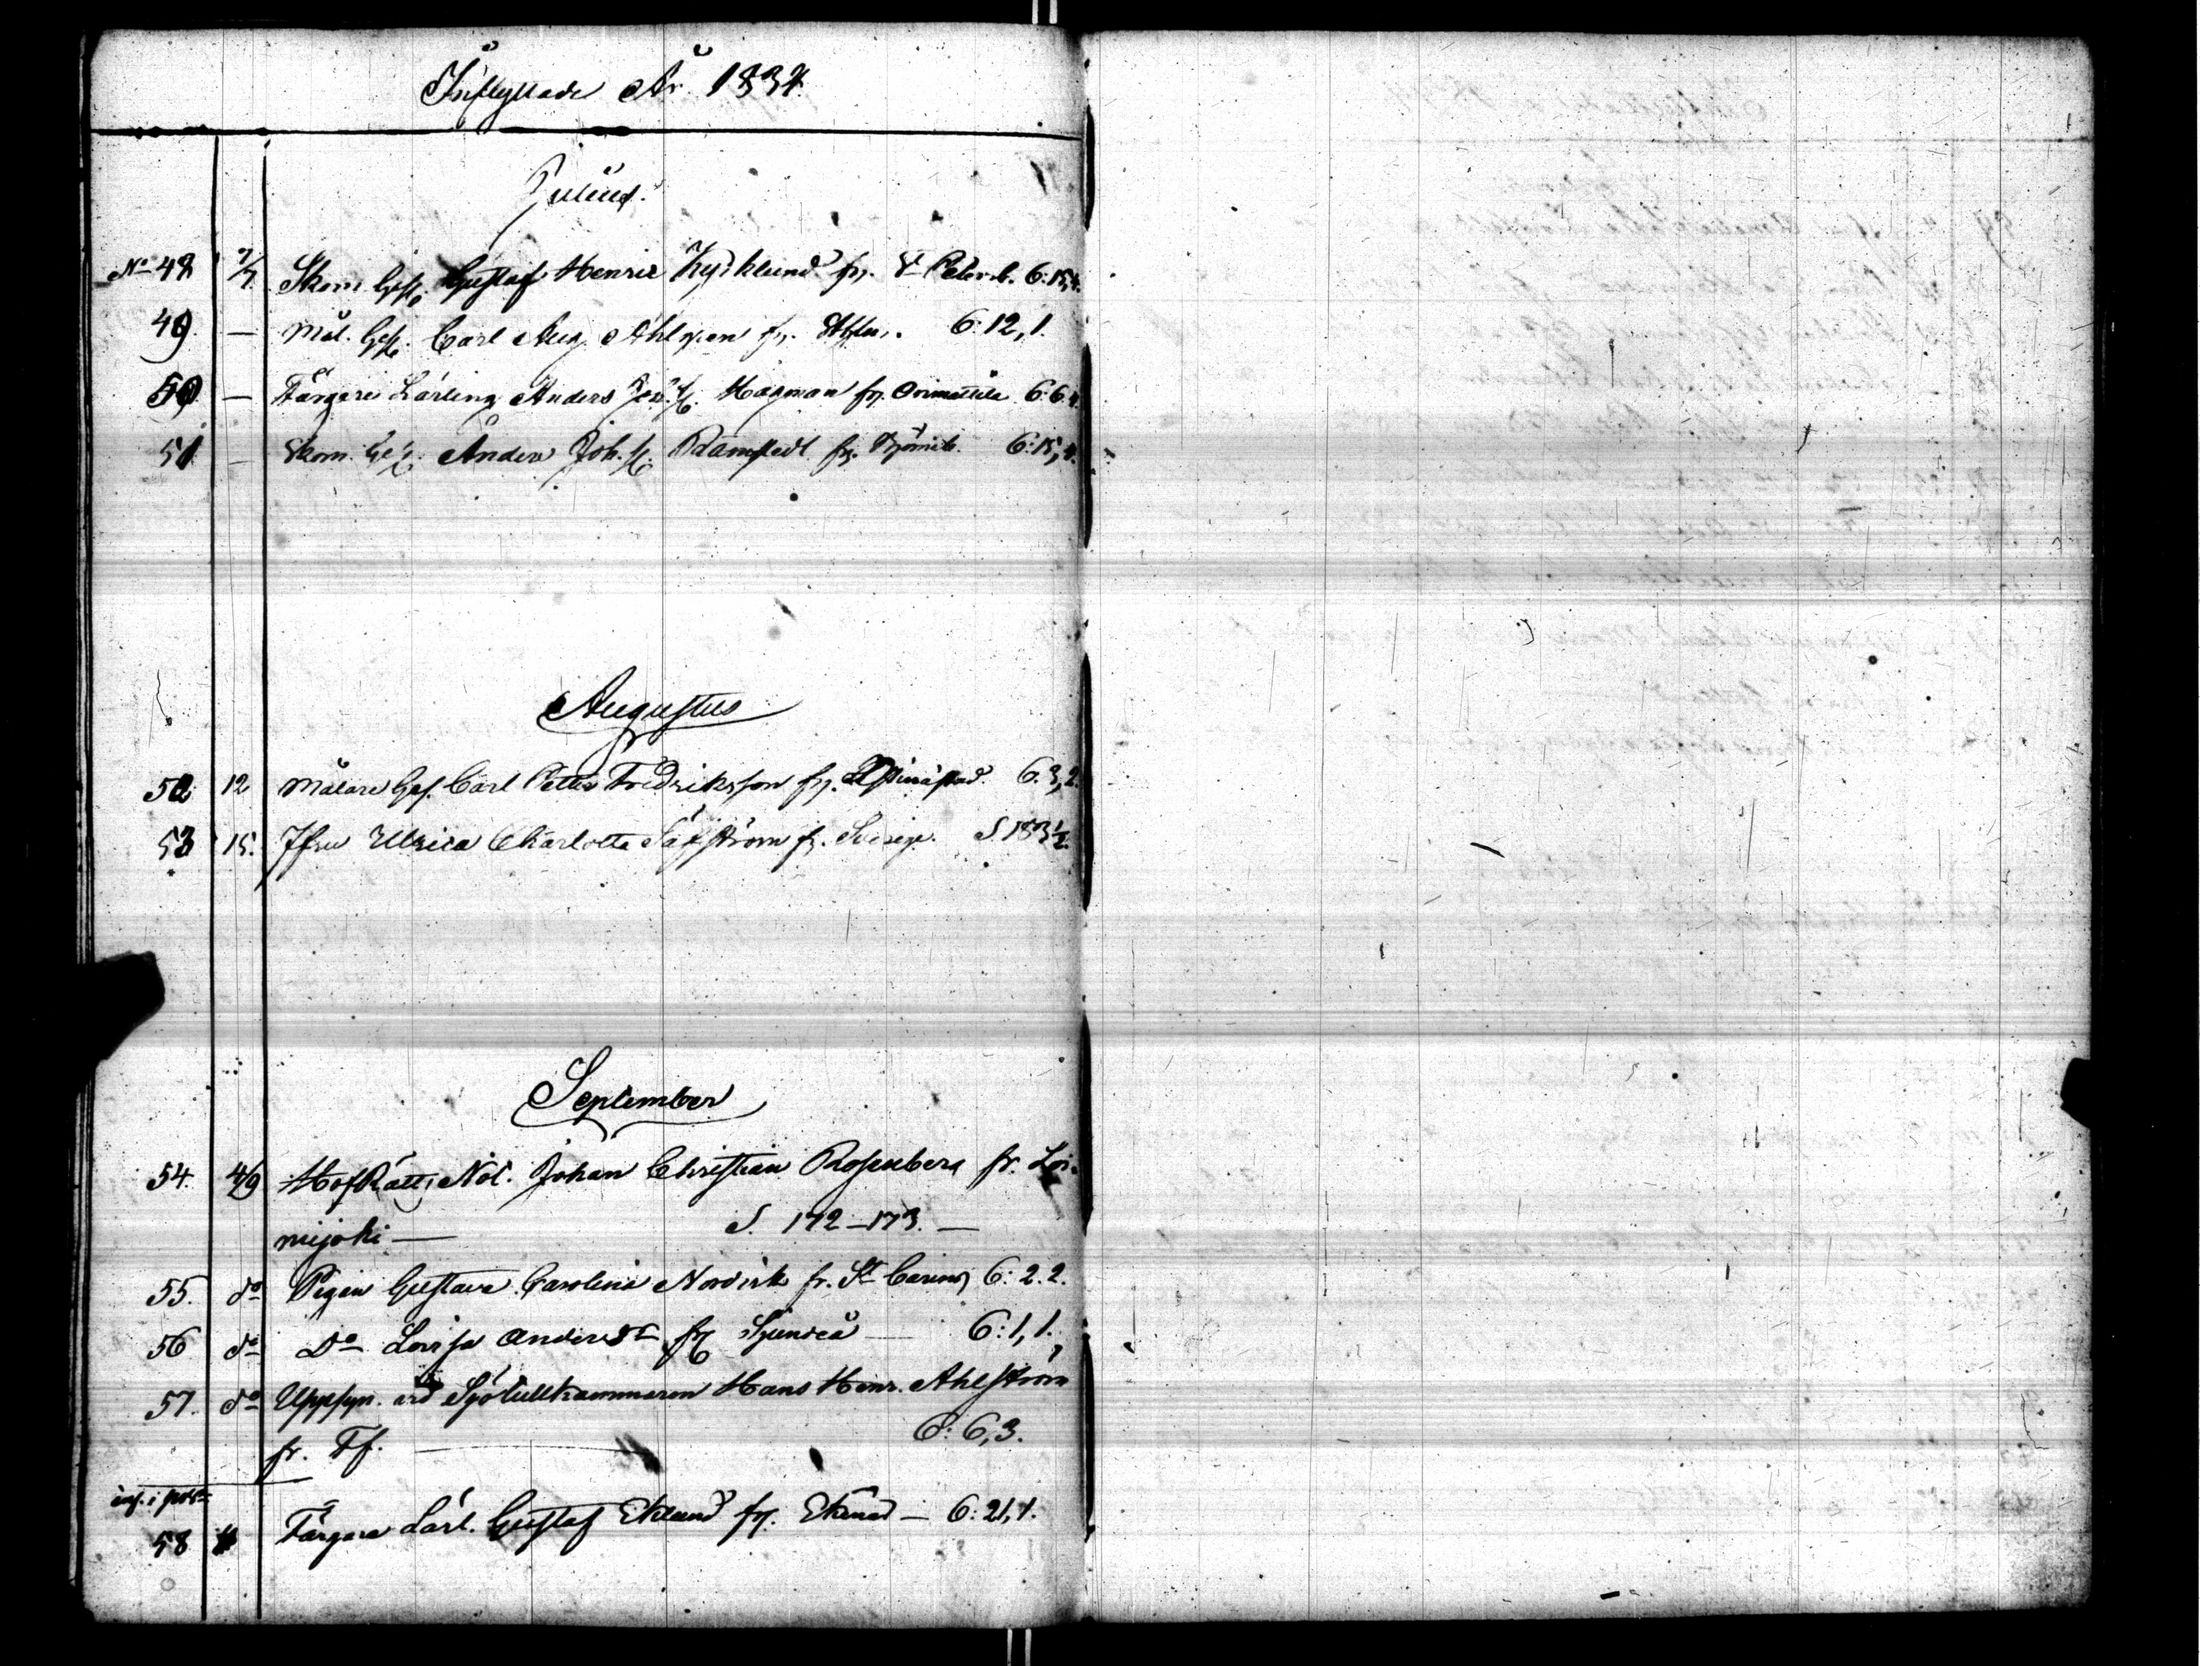 Inflyttade År 1834.
Julius.
No 48 7/7 Skom. Ges. Gustaf Henric Kyrklund fr. St Petersb. 6:15,4.
49 — Mål. Ges. Carl Aug. Ahlgren fr. 6:12,1.
50 — Färgare Lärling Anders Hagman fr. Orimattila 6:6,4.
51 — Skom. Ges. Anders Joh. Ramstedt fr. Björneb. 6:15,4.
Augustus
52 12 Målare Ges. Carl Petter Fredriksson fr. 6:3,2.
53 15. Jfru Ulrica Charlotta Säfström fr. Sverige. S. 183½.
September
54. 4/9 HofRätts Not. Johan Christian Rosenberg fr. Loi-
mijoki — S. 172–173. —
55. do Pigan Gustava Carolina Nordisk fr. St Carins 6:2.2.
56 do Do Lovisa Andersdr fr Sjundeå — 6:1,1.
57. do Uppsyn. vid Sjötullkammaren Hans Henr. Ahlström
fr. Tf. — 6:6,3.
58 4 Färgare Lärl. Gustaf Eklund fr. Ekenäs — 6:21,1.